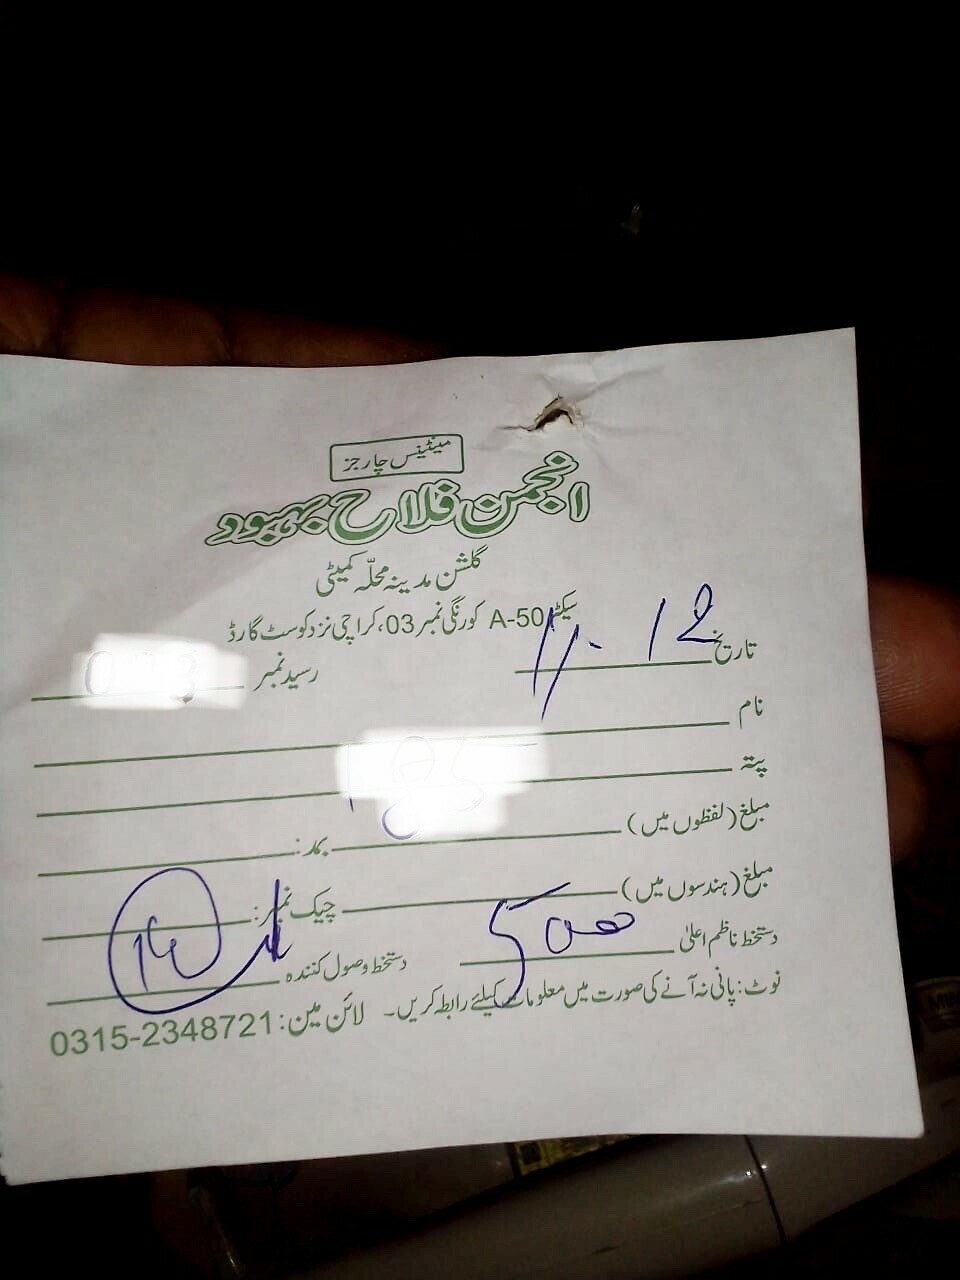 مینٹینس چارجز
انجمن فلاح بہبود
گلشن مدینہ محلّہ کمیٹی
سیکٹر 50-A کورنگی نمبر 03، کراچی نزد کوسٹ گارڈ
تاریخ 11-12 رسید نمبر
نام
پتہ
مبلغ (لفظوں میں) بمد:
مبلغ (ہندسوں میں) چیک نمبر:
500
دستخط ناظم اعلیٰ دستخط وصول کنندہ
نوٹ: پانی نہ آنے کی صورت میں معلومات کیلئے رابطہ کریں۔ لائن مین: 0315-2348721